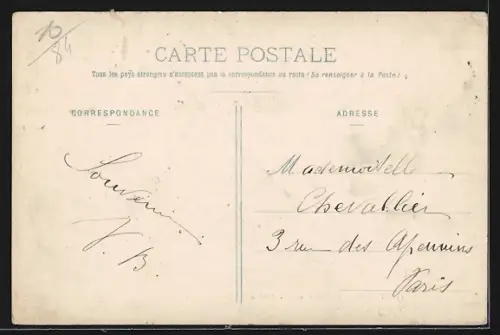 10/84
CARTE POSTALE
Tous les pays étrangers n'acceptent pas la correspondance au recto (Se renseigner à la Poste)
CORRESPONDANCE
ADRESSE
Souvenir
V. B.
Mademoiselle
Chevallier
3 rue des Apennins
Paris